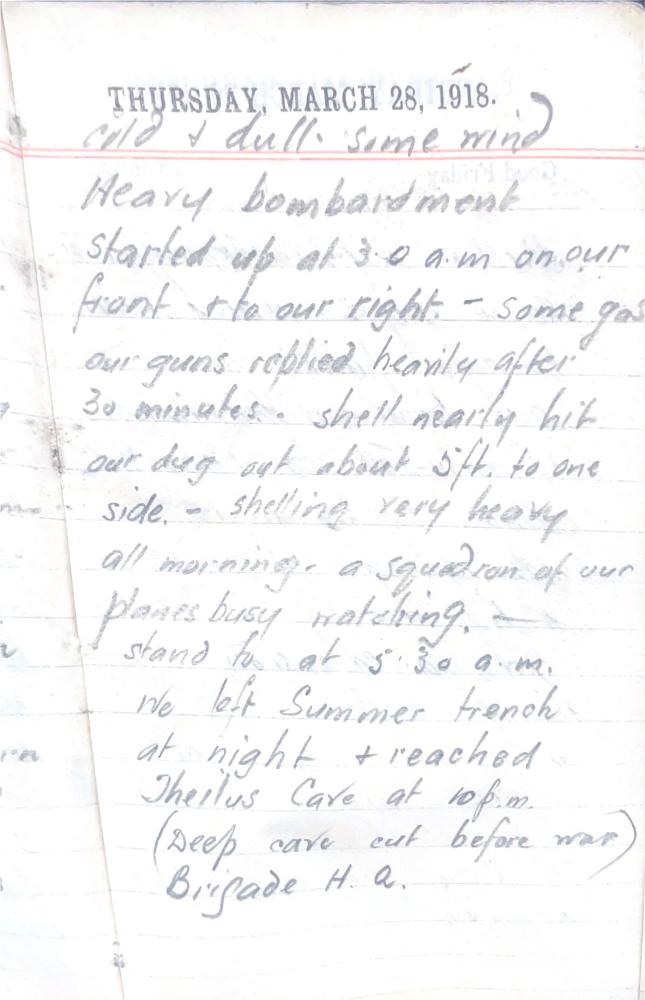 THURSDAY, MARCH 28, 1918.
cold + dull. some wind
Heavy bombardment
started up at 3.0 a.m on our
front + to our right. - some gas
our guns replied heavily after
30 minutes. - shell nearly hit
our dug out about 5ft. to one
side. - shelling very heavy
all morning. - a squadron of our
planes busy watching. -
stand to at 5.30 a.m.
We left Summer trench
at night + reached
Theilus Cave at 10 p.m.
(Deep cave cut before war)
Brigade H. Q.